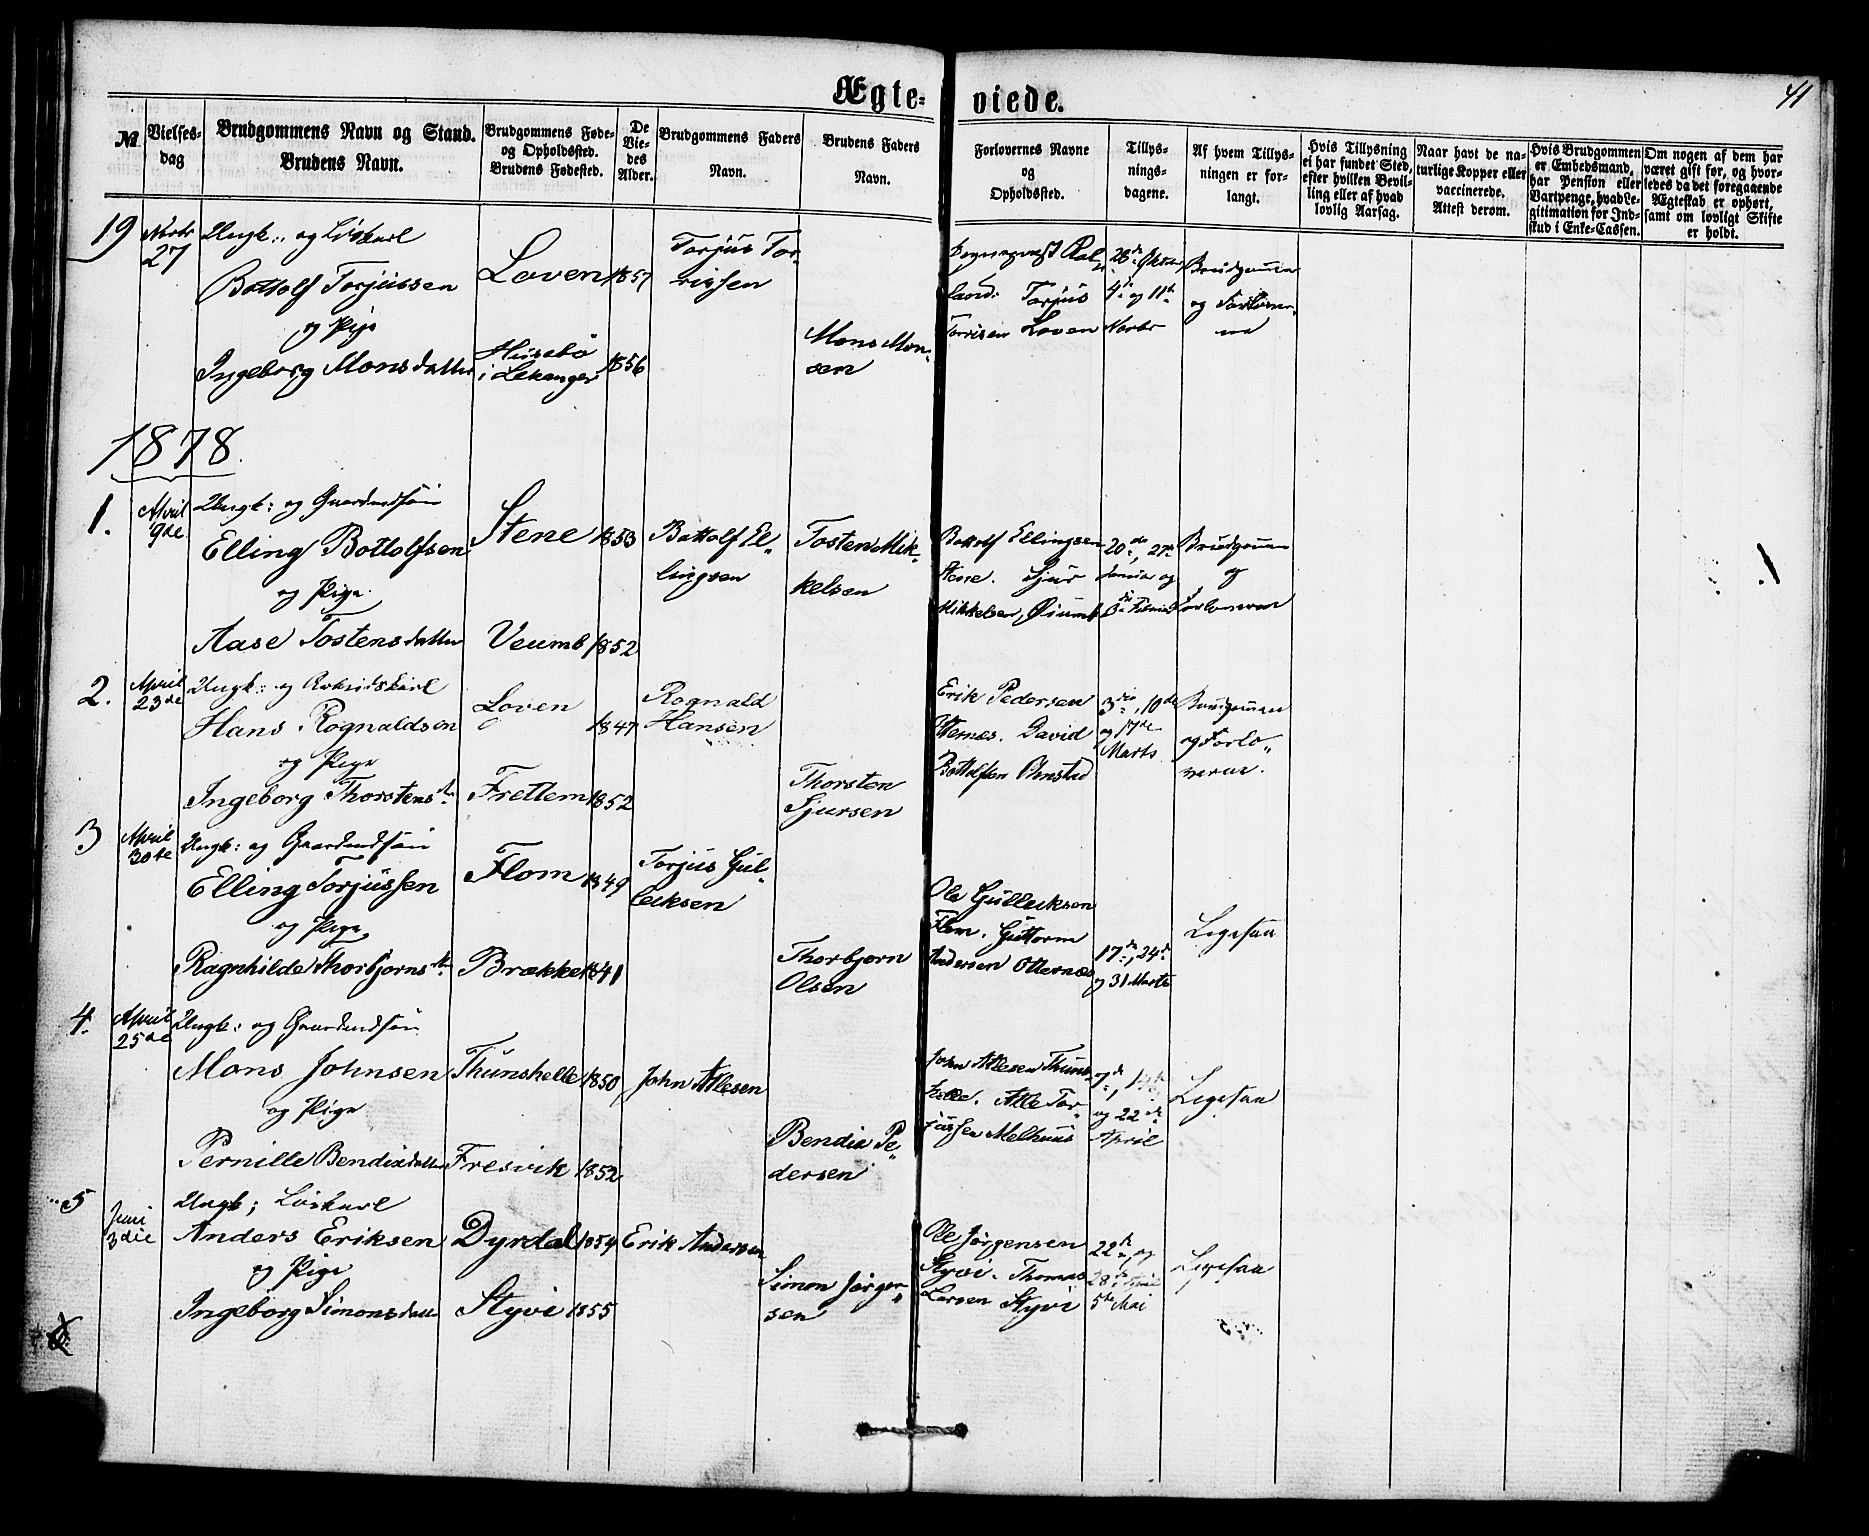 41
Ægteviede.
№
Vielsesdag
Brudgommens Navn og Stand.
Brudens Navn.
Brudgommens Føde-
og Opholdssted.
Brudens Fødested.
De
Vie-
des
Alder.
Brudgommens Faders
Navn.
Brudens Faders
Navn.
Forlovernes Navne
og
Opholdssted.
Tillys-
nings-
dagene.
Af hvem Tillys-
ningen er for-
langt.
Hvis Tillysning
ei har fundet Sted,
efter hvilken Bevil-
ling eller af hvad
lovlig Aarsag.
Naar havt de na-
turlige Kopper eller
vaccinerede.
Attest derom.
Hvis Brudgommen
er Embedsmand,
har Pension eller
Vartpenge, hvad Le-
gitimation for Ind-
skud i Enke-Cassen.
Om nogen af dem har
været gift før, og hvor-
ledes da det foregaaende
Ægteskab er ophørt,
samt om lovligt Skifte
er holdt.
19
Novbr
27
Ungk: og Löskarl
Bottolf Torjussen
og Pige
Ingeborg Monsdatter
Loven
Husebö
i Lekanger
1857
1856
Torjus Tor-
rissen
Mons Mon-
sen
land: Torjus
Torrisen Loven
28de
4de og 11te
Novbr
Brudgommen
og Forlover-
ne
1878.
1.
April
9de
Ungk: og Gaardmandssön
Elling Bottolfsen
og Pige
Aase Tostensdatter
Stene
Veumb
1853
1852
Bottolf El-
lingsen
Tosten Mik-
kelsen
Bottolf Ellingsen
Stene. Sjur
Mikkelsen
20de, 27de
Januar og
Brudgommen
og
Forloverne
1.
2.
April
23de
Ungk: og Arbeidskarl
Hans Rognaldsen
og Pige
Ingeborg Thorstensdtr
Loven
Frettem
1847
1852
Rognald
Hansen
Thorsten
Sjursen
Erik Pedersen
David
Bottolfsen
3die, 10de
og 17de
Marts
Brudgommen
og Forlo-
verne.
3
April
30te
Ungk: og Gaardmandssön
Elling Torjussen
og Pige
Ragnhilde Thorbjornsdtr
Flom
Brække
1849
1841
Torjus Gul-
leiksen
Thorbjorn
Olsen
Ole Gulleiksen
Flom. Guttorm
Andersen Otternæs
17de, 24de
og 31 Marts
Ligesaa
4.
April
25de
Ungk: og Gaardmandssön
Mons Johnsen
og Pige
Pernille Bendixdatter
Thunshelle
Fresvik
1850
1852
John Atlesen
Bendix Pe-
dersen
John Atlesen Thuns-
helle. Atle Tor-
jussen Melhuus
7de, 14de
og 22de
April
Ligesaa
5
Juni
3die
Ungk; Löskarl
Anders Eriksen
og Pige
Ingeborg Simonsdatter
Dyrdal
Styvi
1854
1855
Erik Andersen
Simon Jörgen-
sen
Ole Jørgensen
Styvi. Thomas
Larsen Styvi
22de, og
28de April
5te Mai
Ligesaa